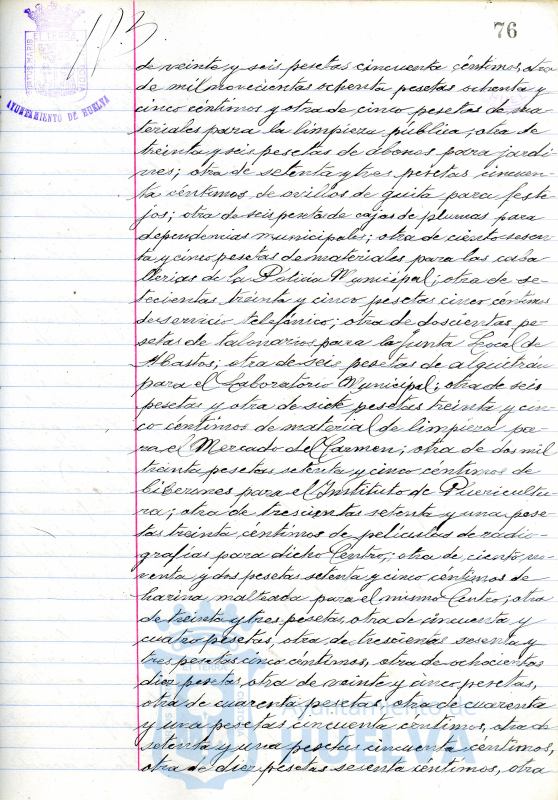 76
AYUNTAMIENTO DE HUELVA
de veinte y seis pesetas cincuenta céntimos, otra
de mil novecientas ochenta pesetas ochenta y
cinco céntimos y otra de cinco pesetas de ma
teriales para la limpieza pública; otra de
treinta y seis pesetas de abonos para jardi
nes; otra de setenta y tres pesetas cincuen
ta céntimos de ovillos de guita para feste
jos; otra de seis pesetas de cajas de plumas para
dependencias municipales; otra de ciento sesen
ta y cinco pesetas de materiales para las caba
llerias de la Policia Municipal; otra de se
tecientas treinta y cinco pesetas cinco céntimos
de servicio telefónico; otra de doscientas pe
setas de talonarios para la Junta Local de
Abastos; otra de seis pesetas de alquitrán
para el Laboratorio Municipal; otra de seis
pesetas y otra de siete pesetas treinta y cin
co céntimos de material de limpieza pa
ra el Mercado del Carmen; otra de dos mil
treinta pesetas setenta y cinco céntimos de
biberones para el Instituto de Puericultu
ra; otra de trescientas setenta y una pese
tas treinta céntimos de películas de radio
grafías para dicho Centro; otra de ciento no
venta y dos pesetas setenta y cinco céntimos de
harina malteada para el mismo Centro; otra
de treinta y tres pesetas, otra de cincuenta y
cuatro pesetas, otra de trescientas sesenta y
tres pesetas cinco centimos, otra de ochocientas
diez pesetas, otra de veinte y cinco pesetas,
otra de cuarenta pesetas, otra de cuarenta
y una pesetas cincuenta céntimos, otra de
setenta y una pesetas cincuenta céntimos,
otra de diez pesetas sesenta céntimos, otra
Ayuntamiento de
HUELVA